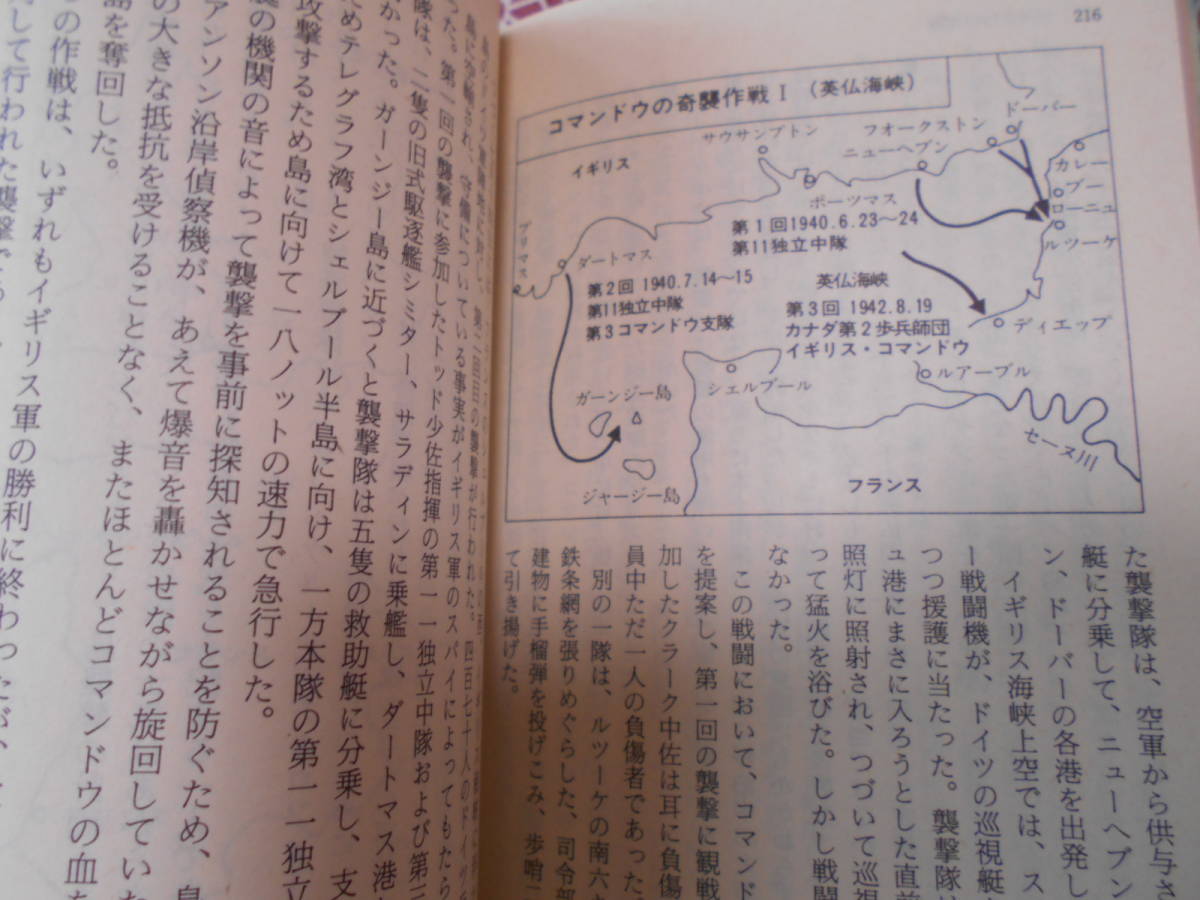 216
コマンドウの奇襲作戦 I （英仏海峡）
イギリス
サウサンプトン
フォークストン
ドーバー
ニューヘブン
カレー
ポーツマス
ブー
ローニュ
ルツーケ
プリマス
ダートマス
第１回1940.6.23〜24
第11独立中隊
第２回 1940.7.14〜15
第11独立中隊
第３コマンドウ支隊
英仏海峡
第３回 1942.8.19
カナダ第２歩兵師団
イギリス・コマンドウ
ディエップ
ガーンジー島
シェルブール
ルアーブル
セーヌ川
ジャージー島
フランス
た襲撃隊は、空軍から供与さ
艇に分乗して、ニューヘブン
ン、ドーバーの各港を出発し
イギリス海峡上空では、ス
ー戦闘機が、ドイツの巡視艇
つつ援護に当たった。襲撃隊は
ュ港にまさに入ろうとした直前
照灯に照射され、つづいて巡視
って猛火を浴びた。しかし戦闘
なかった。
この戦闘において、コマンド
を提案し、第一回の襲撃に観戦
加したクラーク中佐は耳に負傷
員中ただ一人の負傷者であった。
別の一隊は、ルツーケの南六
鉄条網を張りめぐらした、司令部
建物に手榴弾を投げこみ、歩哨二
て引き揚げた。
守備についている事実がイギリス軍のスパイによってもたら
った。第一回の襲撃に参加したトッド少佐指揮の第一一独立中隊および第三
隊は、二隻の旧式駆逐艦シミター、サラディンに乗艦し、ダートマス港
かった。ガーンジー島に近づくと襲撃隊は五隻の救助艇に分乗し、支
ためテレグラフ湾とシェルブール半島に向け、一方本隊の第一一独立
攻撃するため島に向けて一八ノットの速力で急行した。
艇の機関の音によって襲撃を事前に探知されることを防ぐため、島
アンソン沿岸偵察機が、あえて爆音を轟かせながら旋回してい
の大きな抵抗を受けることなく、またほとんどコマンドウの血
島を奪回した。
の作戦は、いずれもイギリス軍の勝利に終わったが、
して行われた襲撃